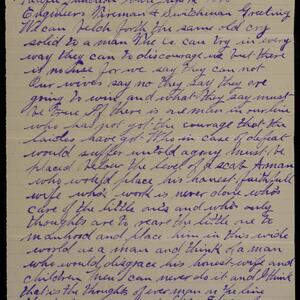 Engineers Fireman & Switchman Greeting
We can belch forth the same old cry
solid to a man The Co can try in every
way they can to discourage us but there
it no use for we say they can not
Our wives say no they say they are
going to win and what they say must
be true if there is a man in our line
who has not got the courage that the
ladies have got Who in case of defeat
would suffer untold agony must be
placed below the level of a scab A man
who would place his honest faithfull
wife who's work is never done who's
care of the little ones and who's only
thoughts are to rear the little one to
manhood and place him in this wide
world as a man and think of a man
who would disgrace his honest wife and
children Men can never do it and I think
that is the thoughts of ever man in the line